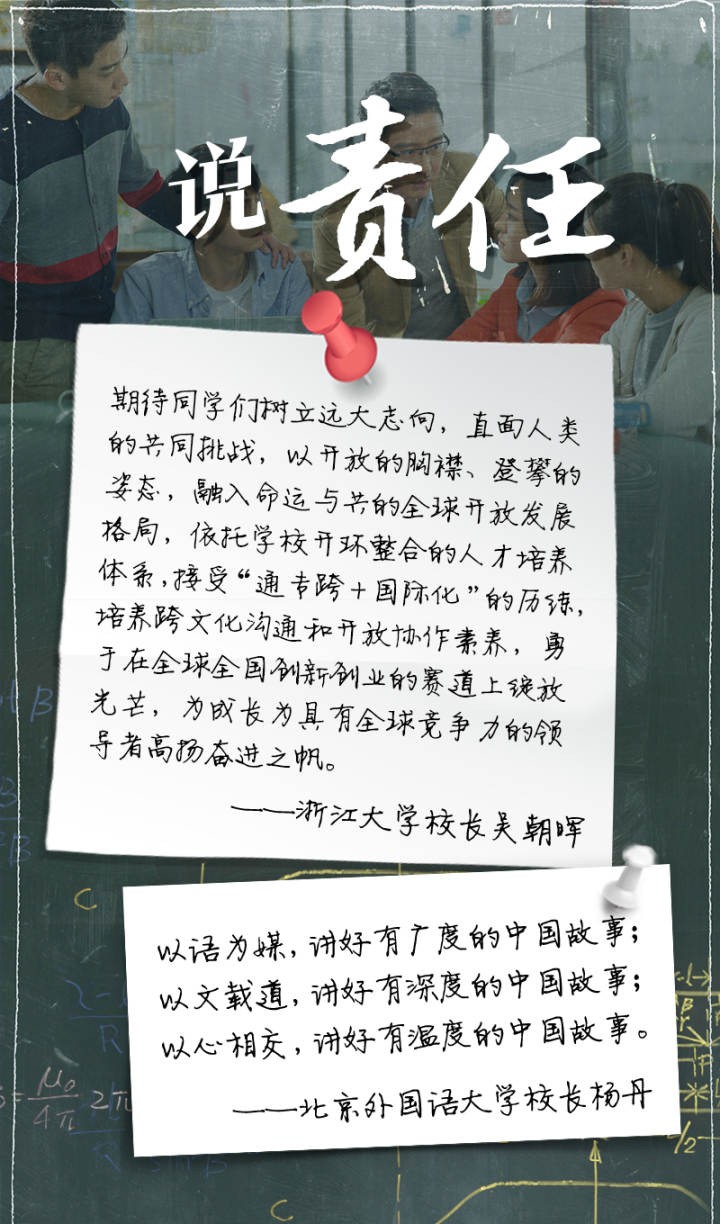 说责任
期待同学们树立远大志向，直面人类
的共同挑战，以开放的胸襟、登攀的
姿态，融入命运与共的全球开放发展
格局，依托学校开环整合的人才培养
体系，接受“通专跨+国际化”的历练，
培养跨文化沟通和开放协作素养，勇
于在全球全国创新创业的赛道上绽放
光芒，为成长为具有全球竞争力的领
导者高扬奋进之帆。
——浙江大学校长吴朝晖
以语为媒，讲好有广度的中国故事；
以文载道，讲好有深度的中国故事；
以心相交，讲好有温度的中国故事。
——北京外国语大学校长杨丹